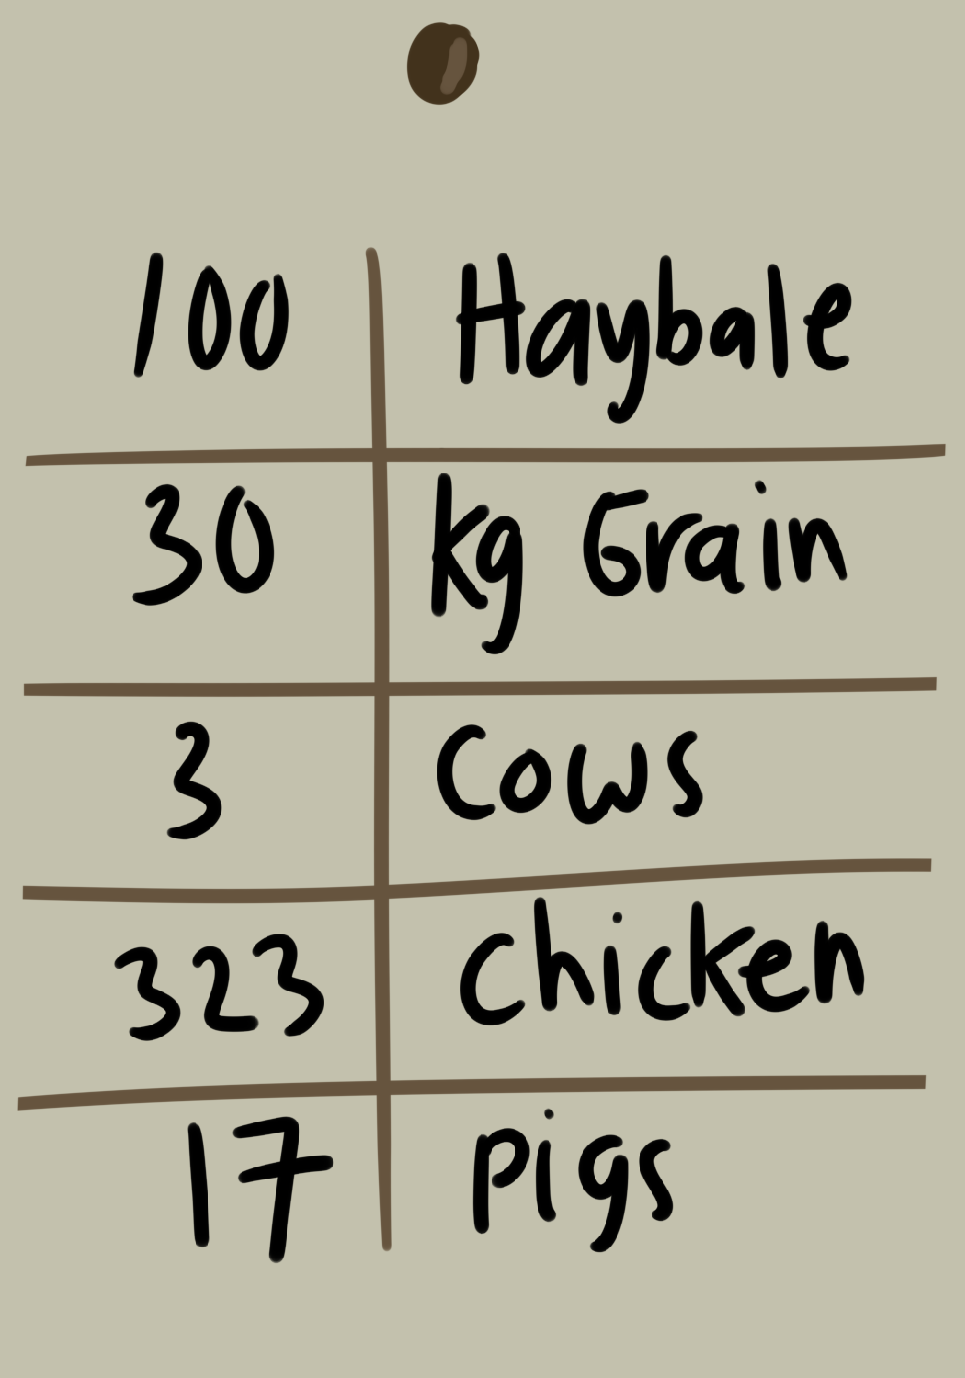 100 Haybale
30 kg Grain
3 Cows
323 Chicken
17 pigs